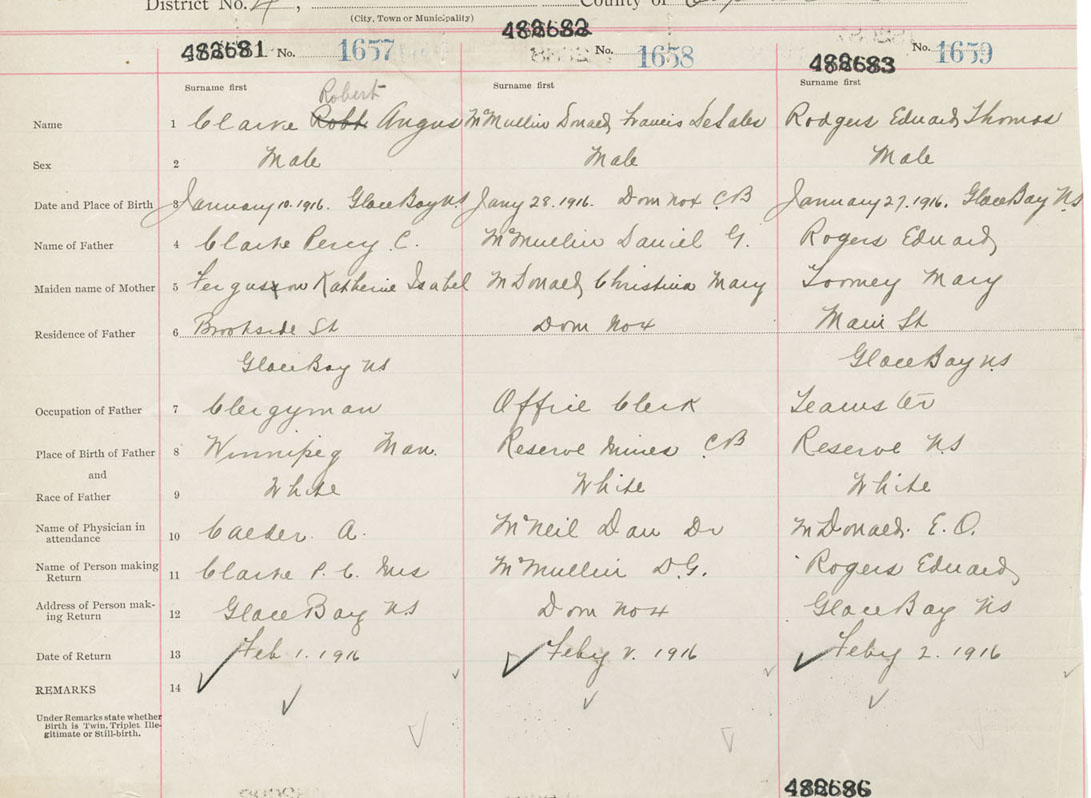 District No. 4, County of
(City, Town or Municipality)
482681 No. 1657 482682 No. 1658 482683 No. 1659
Surname first Surname first Surname first
Robert
Name 1 Clarke Robt. Angus McMullin Donald Francis DeSales Rodgers Edward Thomas
Sex 2 Male Male Male
Date and Place of Birth 3 January 10. 1916. Glace Bay NS Jany 28. 1916. Dom No 4 CB January 27. 1916. Glace Bay NS
Name of Father 4 Clarke Percy C. McMullin Daniel G. Rogers Edward
Maiden name of Mother 5 Ferguson Katherine Isabel McDonald Christina Mary Toomey Mary
Residence of Father 6 Brookside St Dom No 4 Main St
Glace Bay NS Glace Bay NS
Occupation of Father 7 Clergyman Office Clerk Teamster
Place of Birth of Father 8 Winnipeg Man. Reserve Mines CB Reserve NS
and
Race of Father 9 White White White
Name of Physician in
attendance 10 Calder. A. McNeil Dan Dr McDonald. E. O.
Name of Person making
Return 11 Clarke P. C. Mrs McMullin D.G. Rogers Edward
Address of Person mak-
ing Return 12 Glace Bay NS Dom No 4 Glace Bay NS
Date of Return 13 Feb 1. 1916 Feby 2. 1916 Feby 2. 1916
REMARKS 14
Under Remarks state whether
Birth is Twin, Triplet Ille-
gitimate or Still-birth.
482686